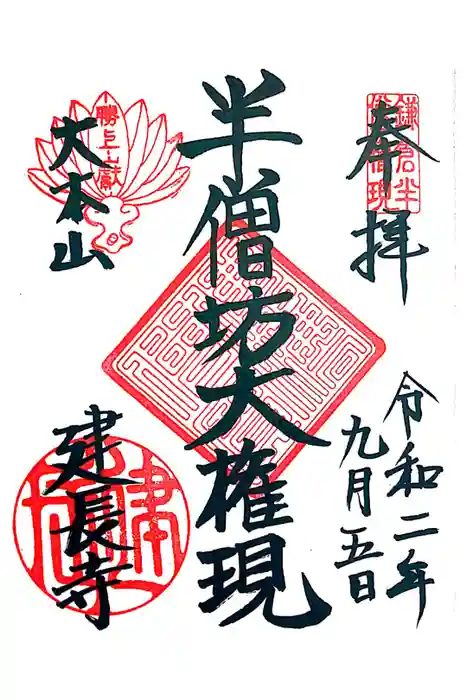 奉拝
鎌倉半僧坊大権現
令和二年
九月五日
半僧坊大権現
勝上献
大本山
建長寺